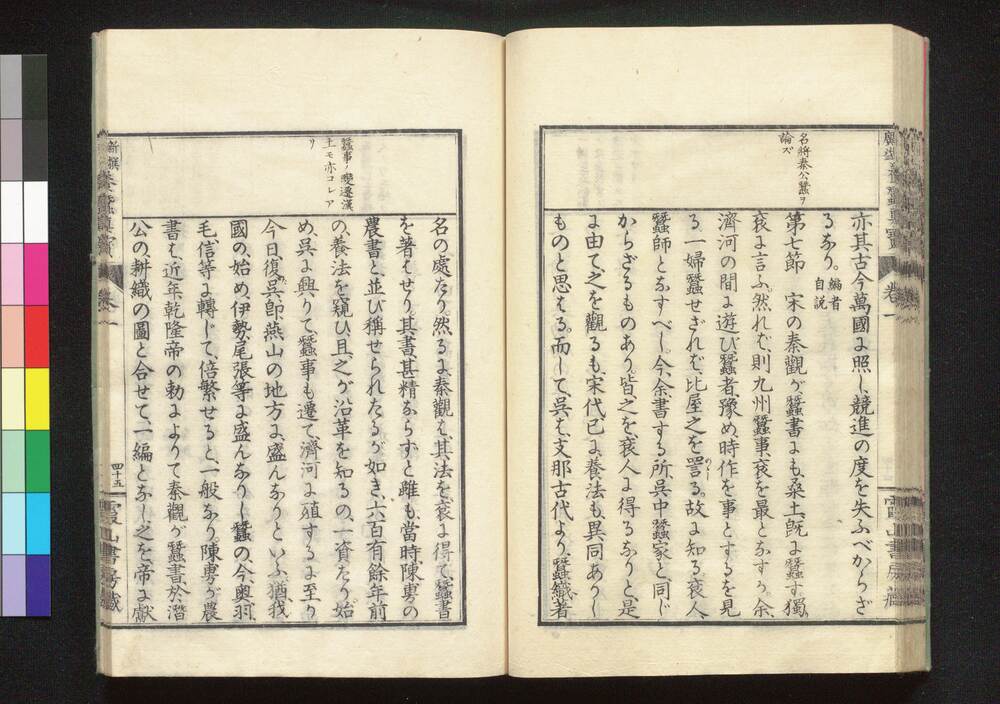 名將秦公蠶ヲ
論ズ
亦其古今萬國ニ照し、競進の度を失ふべからざ
るなり。編者
自説
第七節　宋の秦觀が蠶書にも、桑土既に蠶す、獨
袞に言ふ、然れば則九州蠶事、袞を最となすか、余、
濟河の間に遊び蠶者、豫め時作を事とするを見
る、一婦蠶せざれば、比屋之を詈る。故に知る袞人、
蠶師となすべし。今、余書する所、呉中蠶家と、同じ
からざるものあり。皆之を袞人に得るなりと、是
に由て、之を觀るも、宋代已に、養法も異同ありし
ものと思はる。而して呉は、支那古代より、蠶織者
蠶事ノ變遷漢
土モ亦コレア
リ
名の處たり。然るに、秦觀は、其法を袞に得て、蠶書
を著はせり。其書甚精ならずと雖も、當時、陳旉の
農書と、並び稱せられたるが如き、六百有餘年前
の、養法を窺ひ、且之が沿革を知るの、一資たり。始
め、呉に興りて、蠶事も遷て、濟河に殖するに至り、
今日、復呉、即、燕山の地方に、盛んなりといふ、猶我
國の、始め、伊勢、尾張等に盛んなりし蠶の、今、奥羽、
毛、信等に轉じて、倍繁せると、一般なり。陳旉が農
書は、近年乾隆帝の勅によりて、秦觀が蠶書、於潛
公の、耕織の圖と合せて、一編となし之を帝に獻
新撰養蠶眞寶
卷一
四十五
霞山書房藏
卷一
霞山書房藏